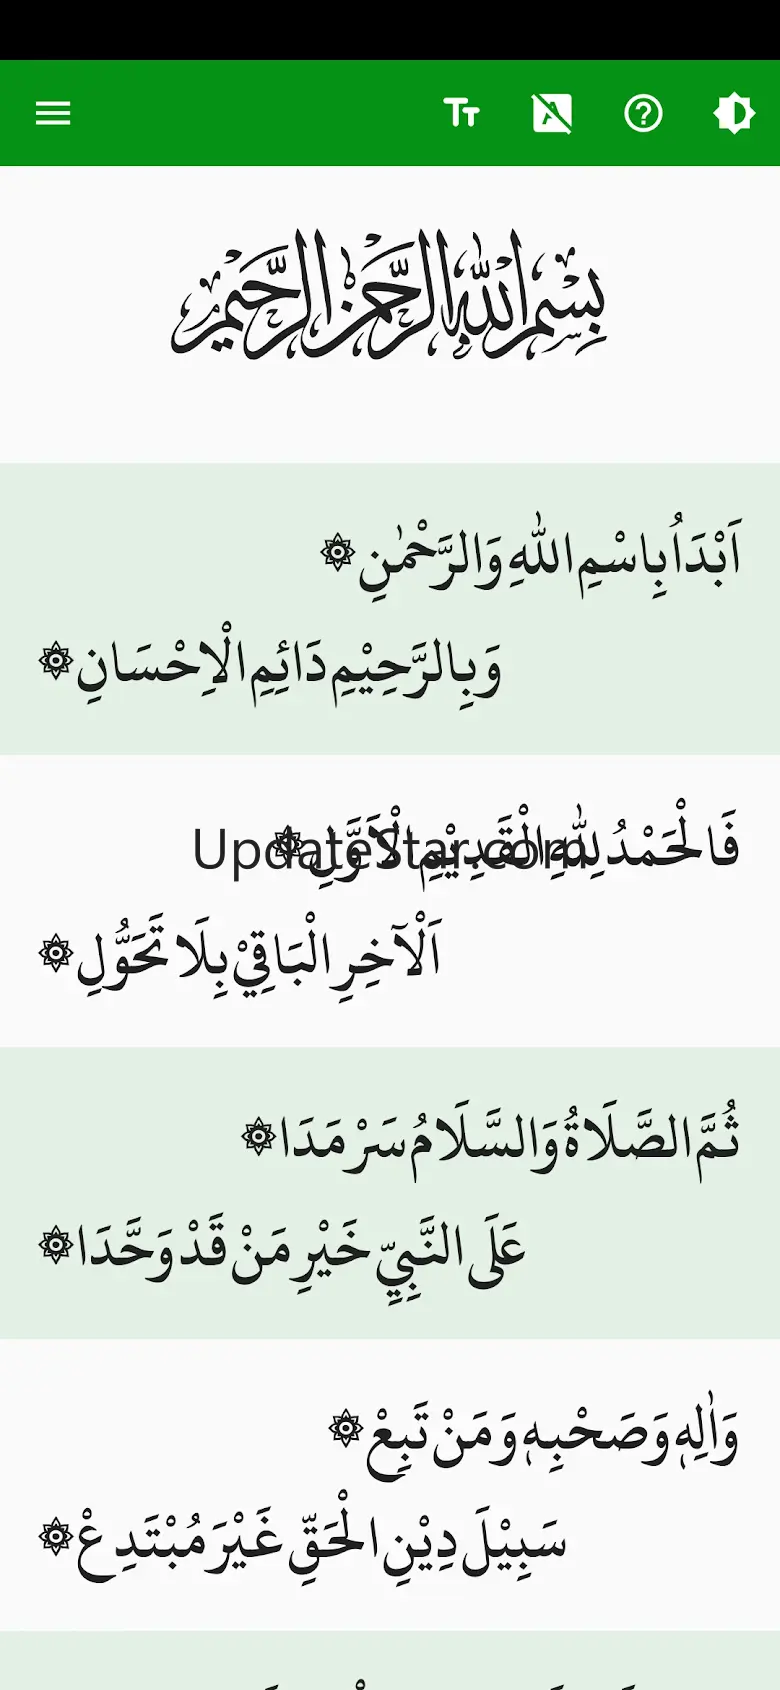 بِسْمِ اللهِ الرَّحْمٰنِ الرَّحِيْمِ
اَبْدَاُ بِاسْمِ اللهِ وَالرَّحْمٰنِ ۞
وَبِالرَّحِيْمِ دَائِمِ الْاِحْسَانِ ۞
فَالْحَمْدُ لِلّٰهِ الْقَدِيْمِ الْاَوَّلِ ۞
UpdateStar.com
اَلْآخِرِ الْبَاقِيْ بِلَا تَحَوُّلِ ۞
ثُمَّ الصَّلَاةُ وَالسَّلَامُ سَرْمَدَا ۞
عَلَى النَّبِيِّ خَيْرِ مَنْ قَدْ وَحَّدَا ۞
وَاٰلِهٖ وَصَحْبِهٖ وَمَنْ تَبِعْ ۞
سَبِيْلَ دِيْنِ الْحَقِّ غَيْرَ مُبْتَدِعْ ۞